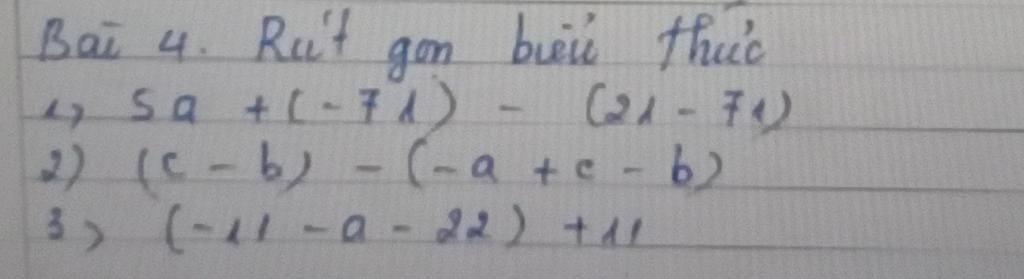 Bài 4. Rút gọn biểu thức
1) 5a + (-71) - (21 - 71)
2) (c - b) - (-a + c - b)
3) (-11 - a - 22) + 11